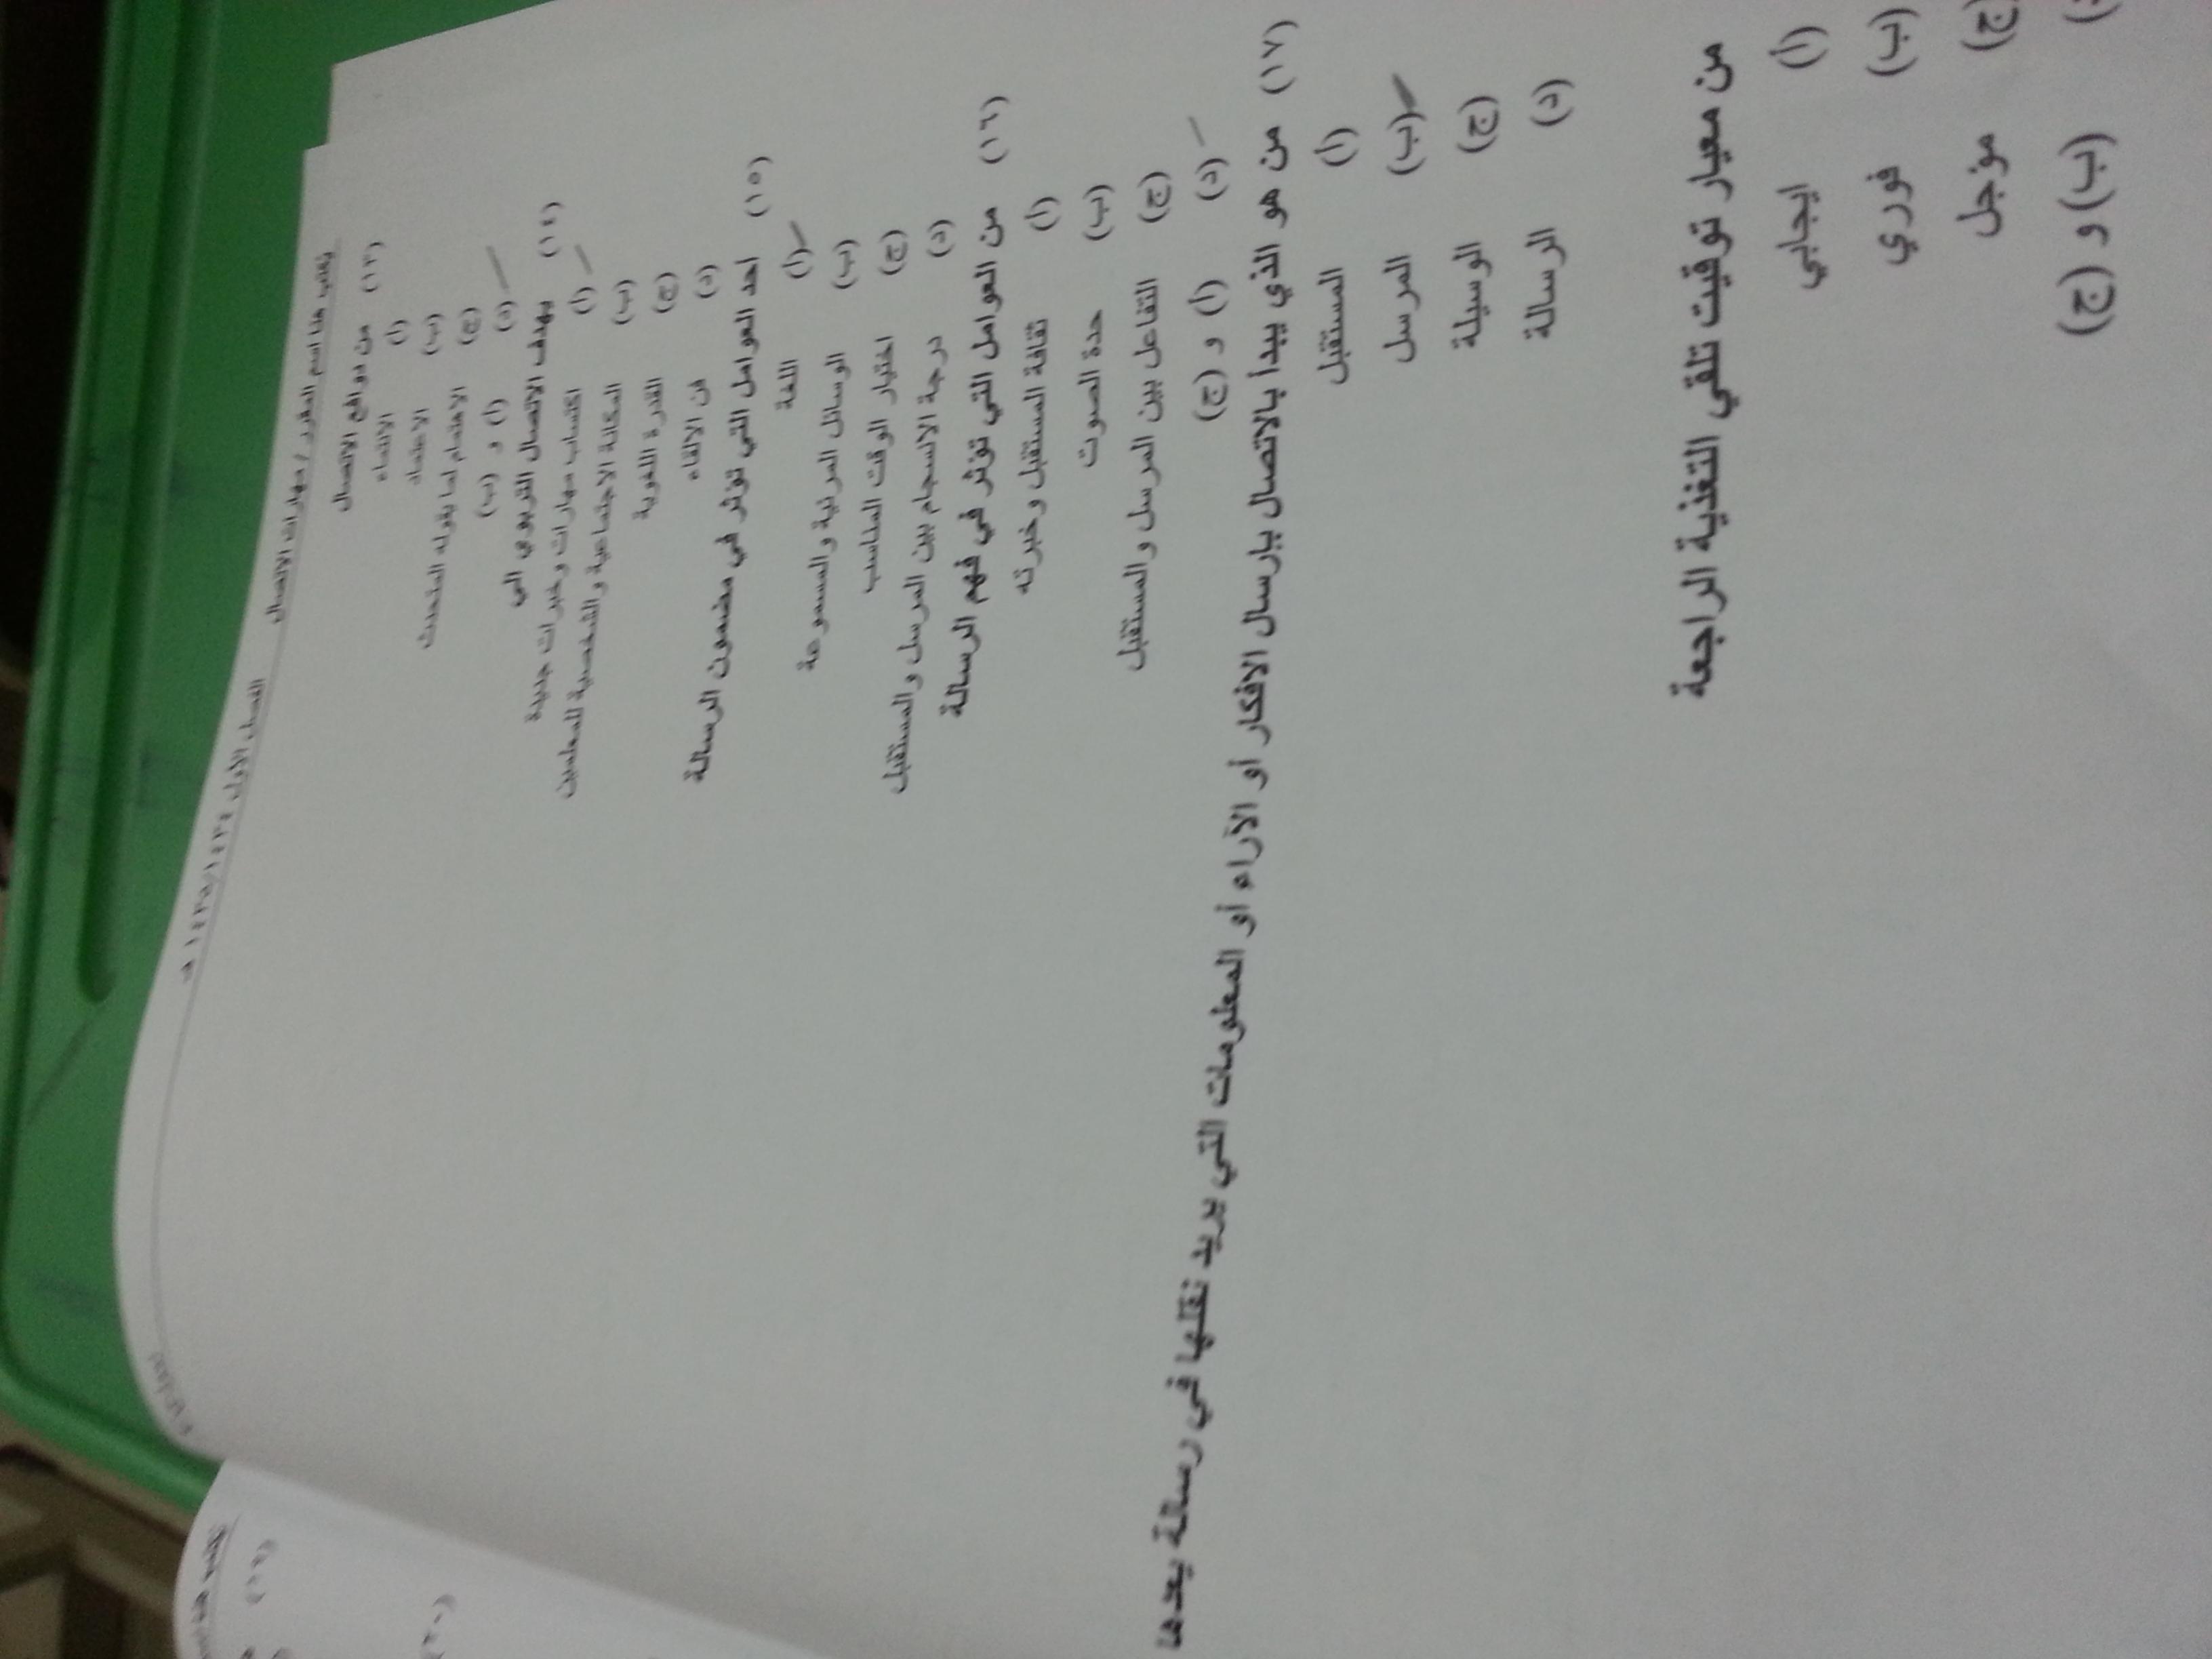 يكتب هنا اسم المقرر / مهارات الاتصال الفصل الاول ١٤٣٤/١٤٣٥ هـ
(١٣) من دوافع الاتصال
(أ) الانتماء
(ب)
(ج) الاهتمام لما يقوله المتحدث
(د) (أ) و (ب)
(١٤) يهدف الاتصال التربوي الى
(أ) اكتساب مهارات وخبرات جديدة
(ب) المكانة الاجتماعية والشخصية للمعلمين
(ج) القدرة اللغوية
(د) فن الالقاء
(١٥) احد العوامل التي تؤثر في مضمون الرسالة
(أ) اللغة
(ب) الوسائل المرئية والمسموعة
(ج) اختيار الوقت المناسب
(د) درجة الانسجام بين المرسل والمستقبل
(١٦) من العوامل التي تؤثر في فهم الرسالة
(أ) ثقافة المستقبل وخبرته
(ب) حدة الصوت
(ج) التفاعل بين المرسل والمستقبل
(د) (أ) و (ج)
(١٧) من هو الذي يبدأ بالاتصال بإرسال الافكار أو الآراء أو المعلومات التي يريد نقلها في رسالة يعدها
(أ) المستقبل
(ب) المرسل
(ج) الوسيلة
(د) الرسالة
من معيار توقيت تلقي التغذية الراجعة
(أ) ايجابي
(ب) فوري
(ج) مؤجل
(ب) و (ج)